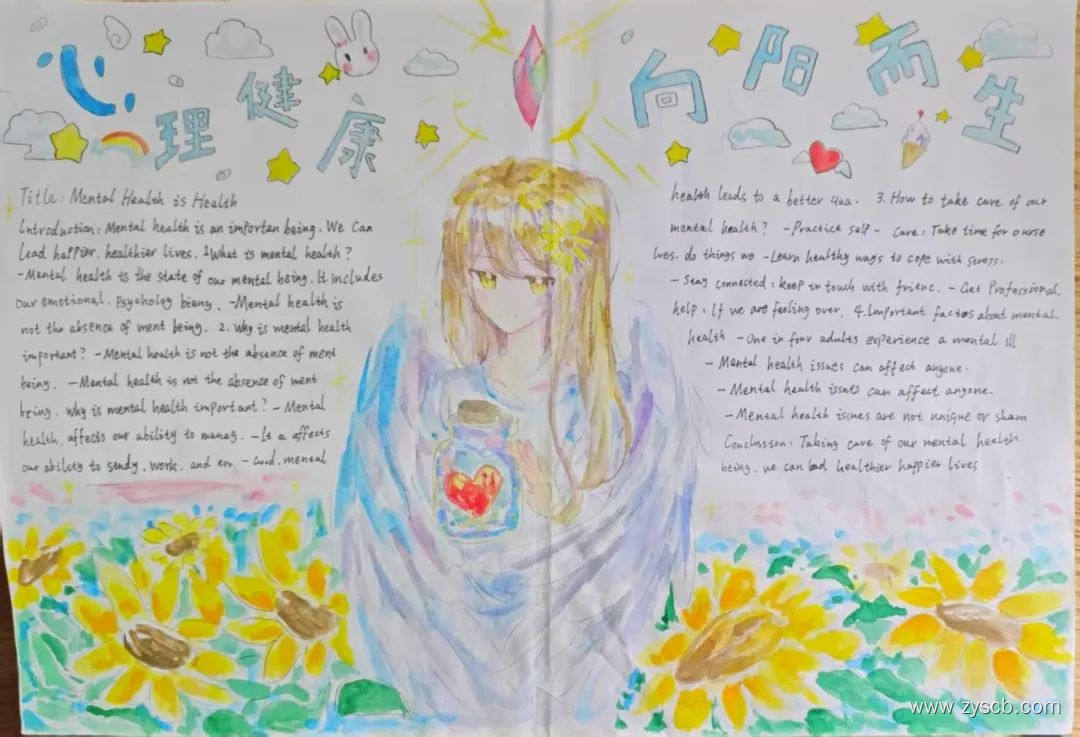 心理健康
向阳而生
Title: Mental Health is Health
Introduction: Mental health is an importan being. We Can
Lead happier, healthier lives. 1What is mental health?
-Mental health is the state of our mental being. It includes
our emotional. Psycholog bieng. -Mental health is
not the absence of ment being. 2. Why is mental health
important? -Mental health is not the absence of ment
being. -Mental health is not the absence of ment
being. Why is mental health important? - Mental
health, affects our ability to manag. -It affects
our ability to study, work. and err. - Good. mental
health leads to a better qua. 3. How to take care of our
mental health? -Practice self- care: Take time for ourse
lves. do things we -Learn healthy ways to cope with stress:
- Stay connected: keep in touch with frienc. - Get Professional.
help: If we are feeling over. 4.Important factos about mental.
health - One in four adults experience a mental ill
- Mental health issues can affect anyone.
- Mental health issues can affect anyone.
- Mental health issues are not unique or sham
Conclusion: Taking care of our mental health
being. we can lead healthier happier lives
www.zyscb.com